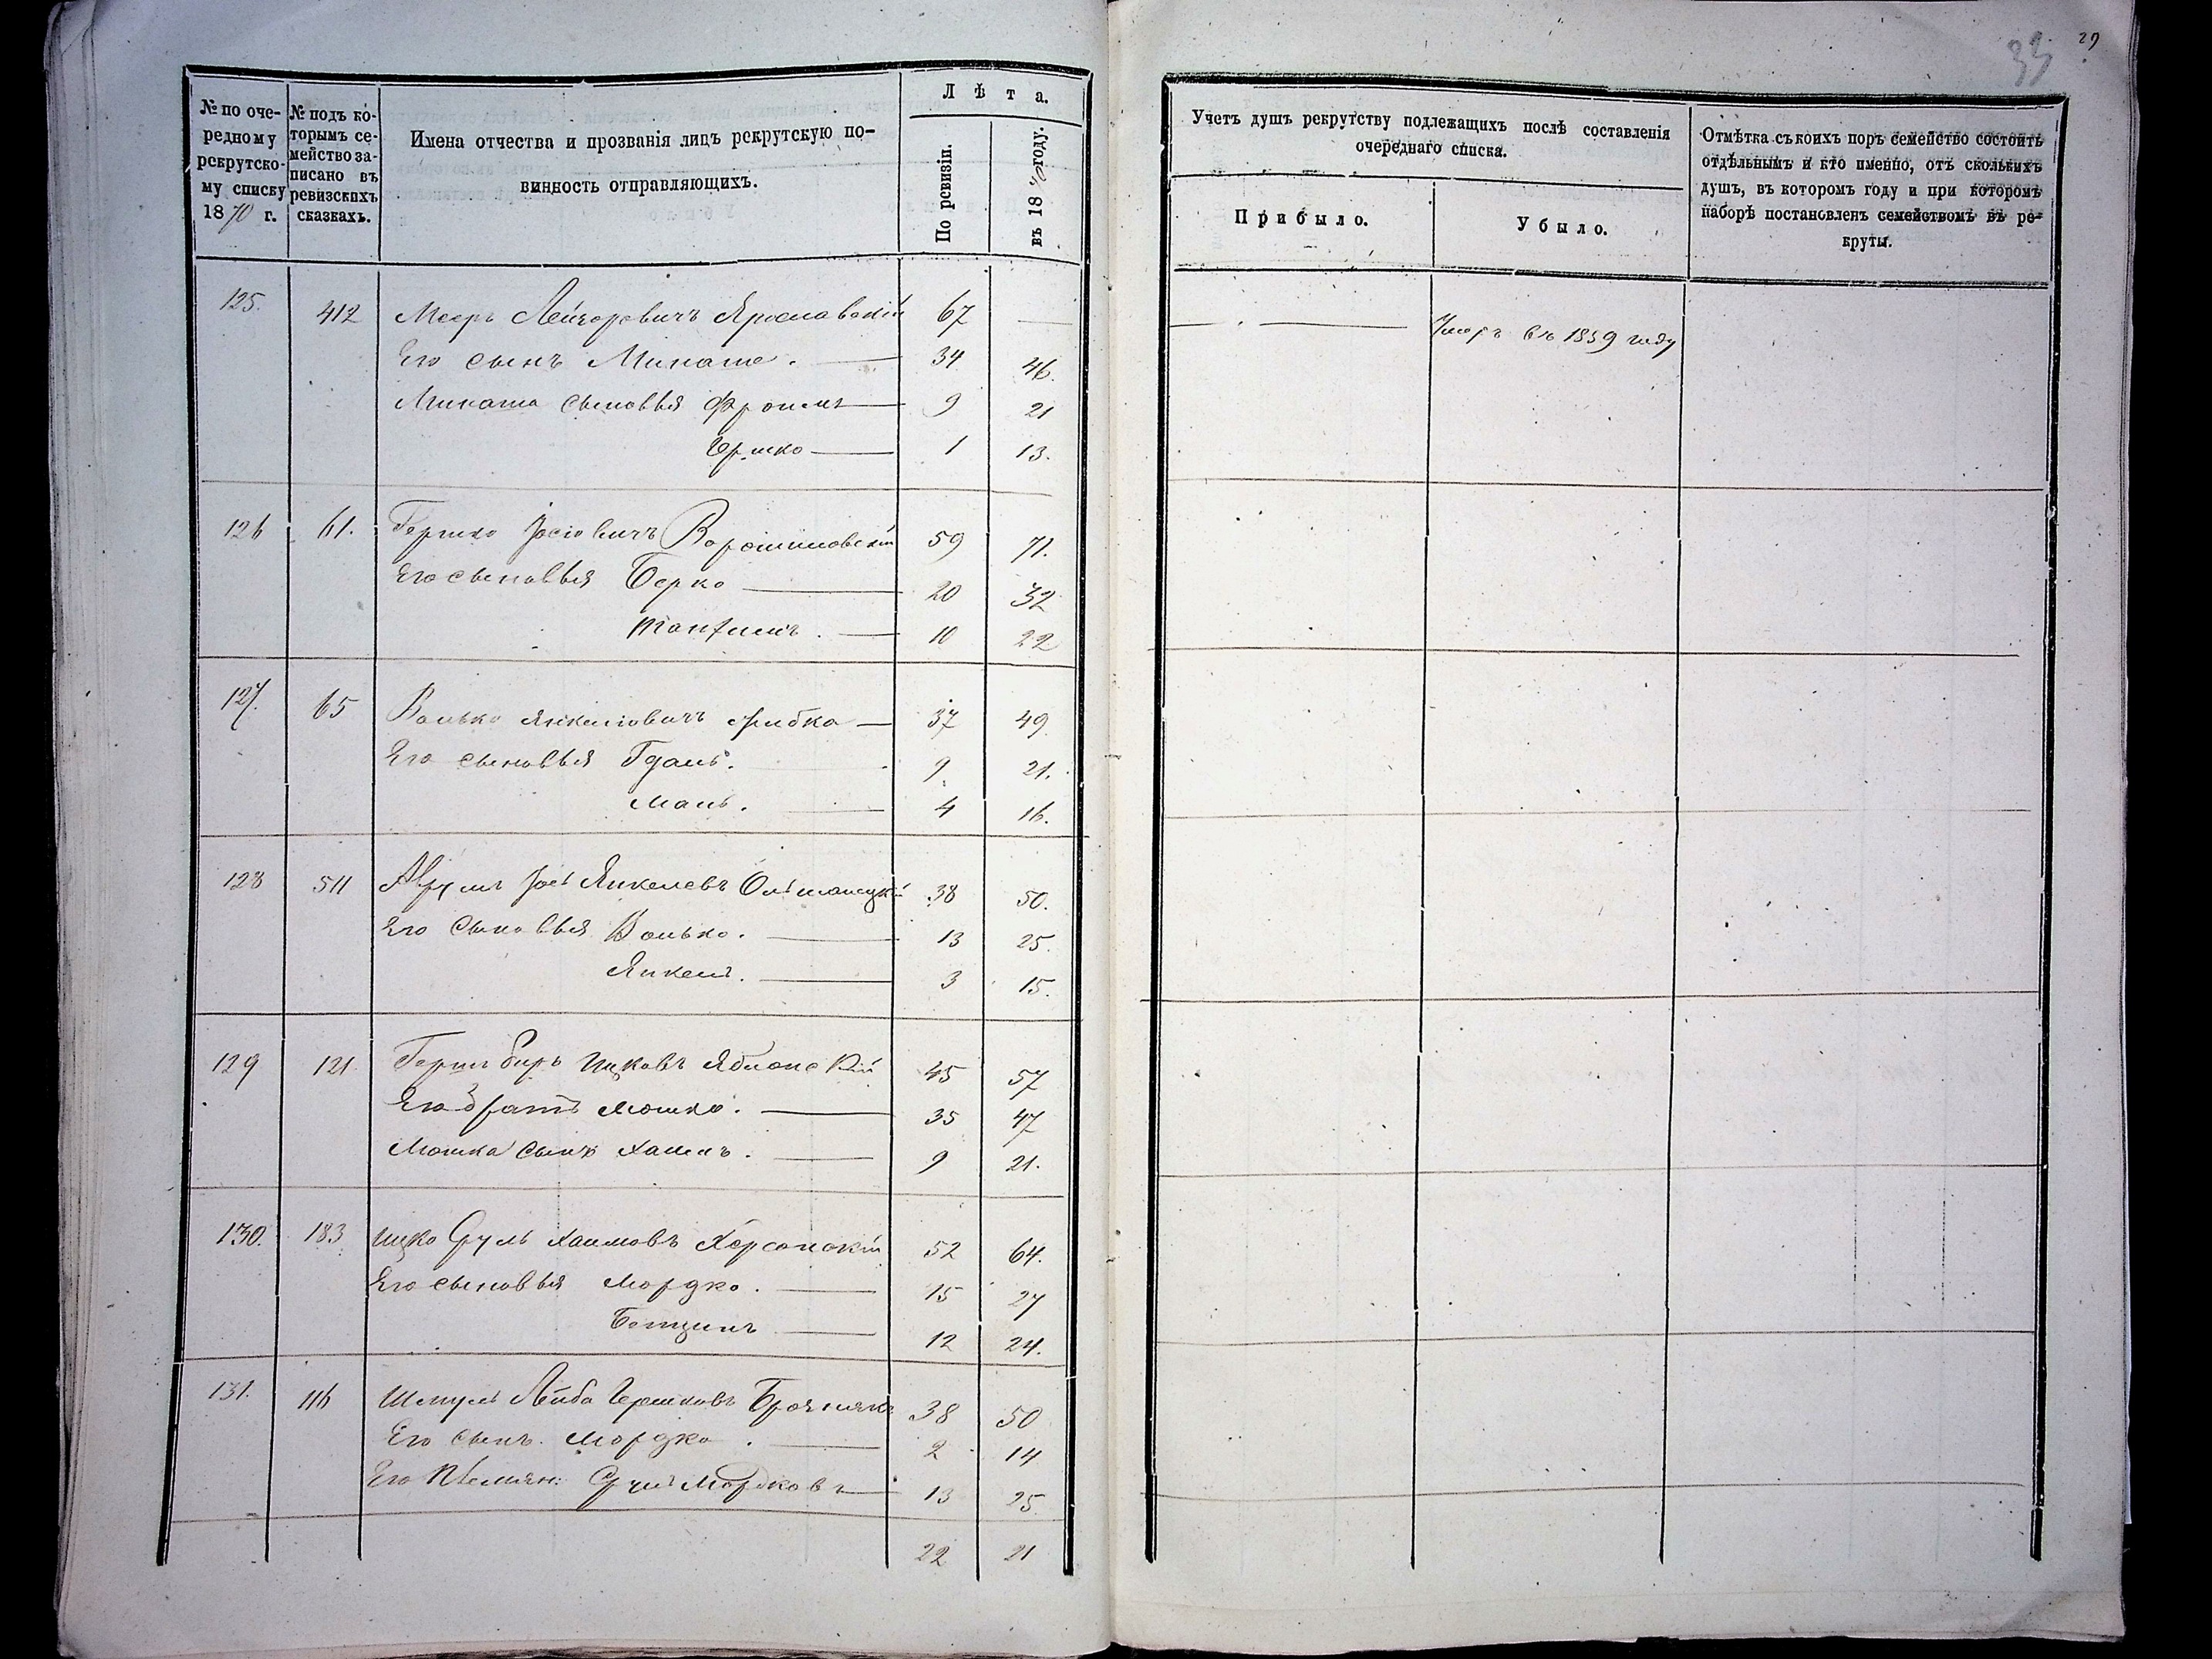 № по оче-
редному
рекрутско-
му списку
1870 г.
№ подъ ко-
торымъ се-
мейство за-
писано въ
ревизскихъ
сказкахъ.
Имена отчества и прозванія лицъ рекрутскую по-
винность отправляющихъ.
Лѣта.
По ревизіи.
въ 1870 году.
125. 412 Мееръ Лейзоровичъ Ярославскій 67 —
Его сынъ Минаше. 34 46.
Минаша сыновья Фроимъ 9 21
Гершко 1 13.
126 61. Гершко Іосіовичъ 59 71.
Его сыновья Берко 20 32
10 22
127. 65 Волько Янкелiовичъ Рибка 37 49
Его сыновья 9. 21.
4 16.
128 511 Аврумъ Іось Янкелевъ Ольшанецкій 38 50.
Его сыновья Волько. 13 25.
Янкель. 3 15.
129 121 Герш Беръ Ицковъ Яблонскій 45 57
Его братъ Мошко. 35 47
Мошка сынъ Хаимъ. 9 21.
130. 183 Ицко Сруль Хаимовъ Херсонскій 52 64.
Его сыновья Мордко. 15 27
Бенціинъ 12 24.
131. 116 Шмуль Лейба Гершковъ 38 50
Его сынъ Мордко. 2 14
Его племян: Сруль Мордковъ 13 25
22 21
33
29
Учетъ душъ рекрутству подлежащихъ послѣ составленія
очереднаго списка.
Прибыло.
Убыло.
Отмѣтка съ коихъ поръ семейство состоитъ
отдѣльнымъ и кто именно, отъ сколькихъ
душъ, въ которомъ году и при которомъ
наборѣ постановленъ семействомъ въ ре-
круты.
Умеръ въ 1859 году